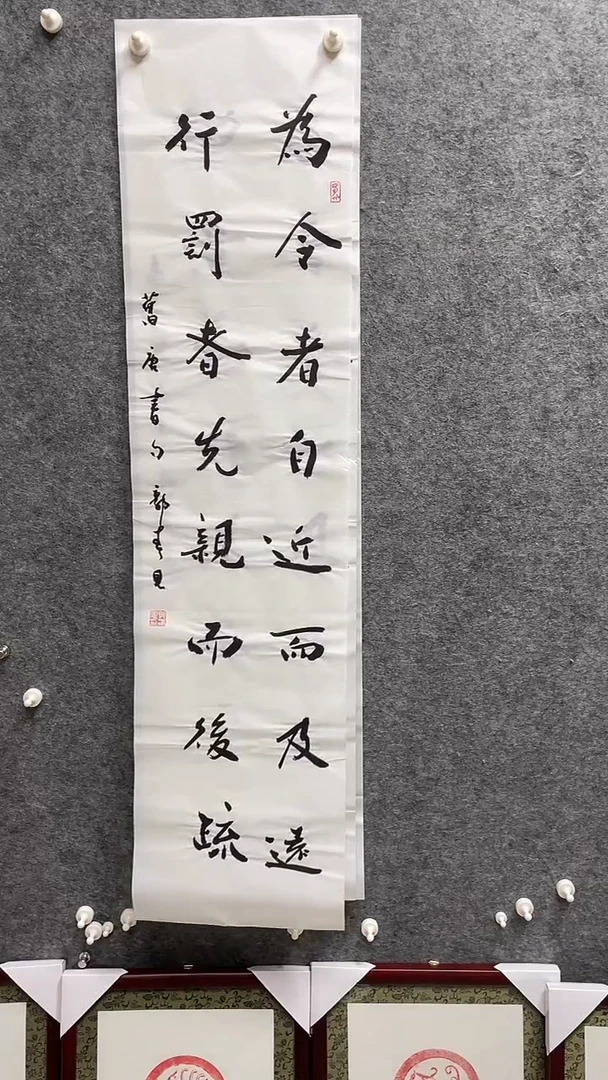 為令者自近而及遠
行罰者先親而後疏
舊唐書句郭春見